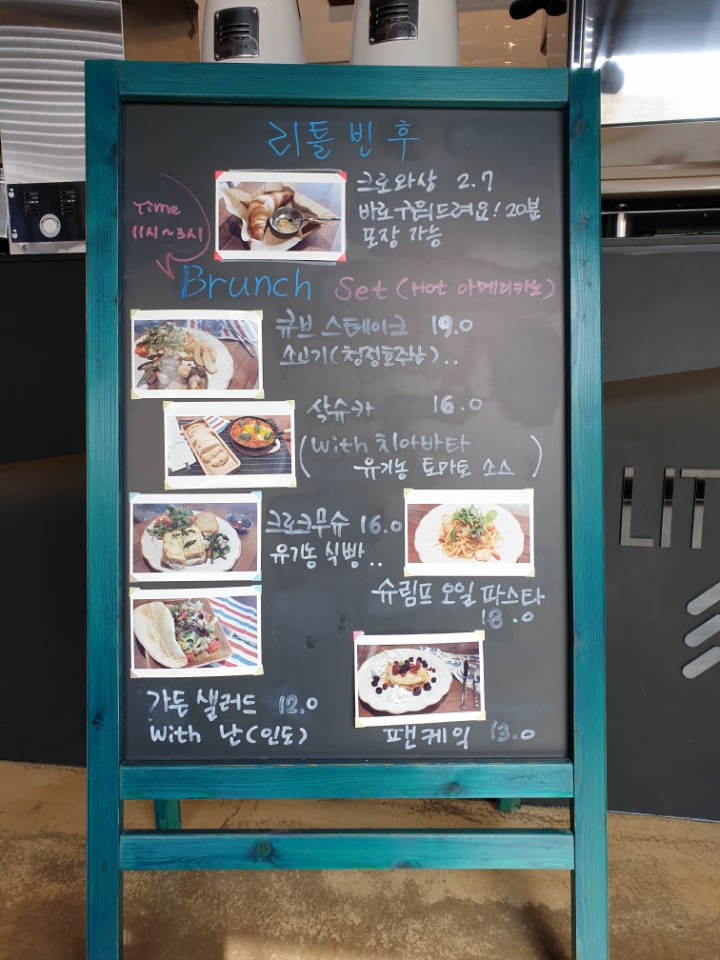 리틀빈후
크로와상 2.7
바로구워드려요! 20분
포장 가능
Time
11시~3시
Brunch Set (Hot 아메리카노)
큐브 스테이크 19.0
소고기(청정호주산)..
삭슈카 16.0
(With 치아바타
유기농 토마토 소스)
크로크무슈 16.0
유기농 식빵..
슈림프 오일 파스타
18.0
가든 샐러드 12.0
With 난(인도)
팬케익 13.0
LIT